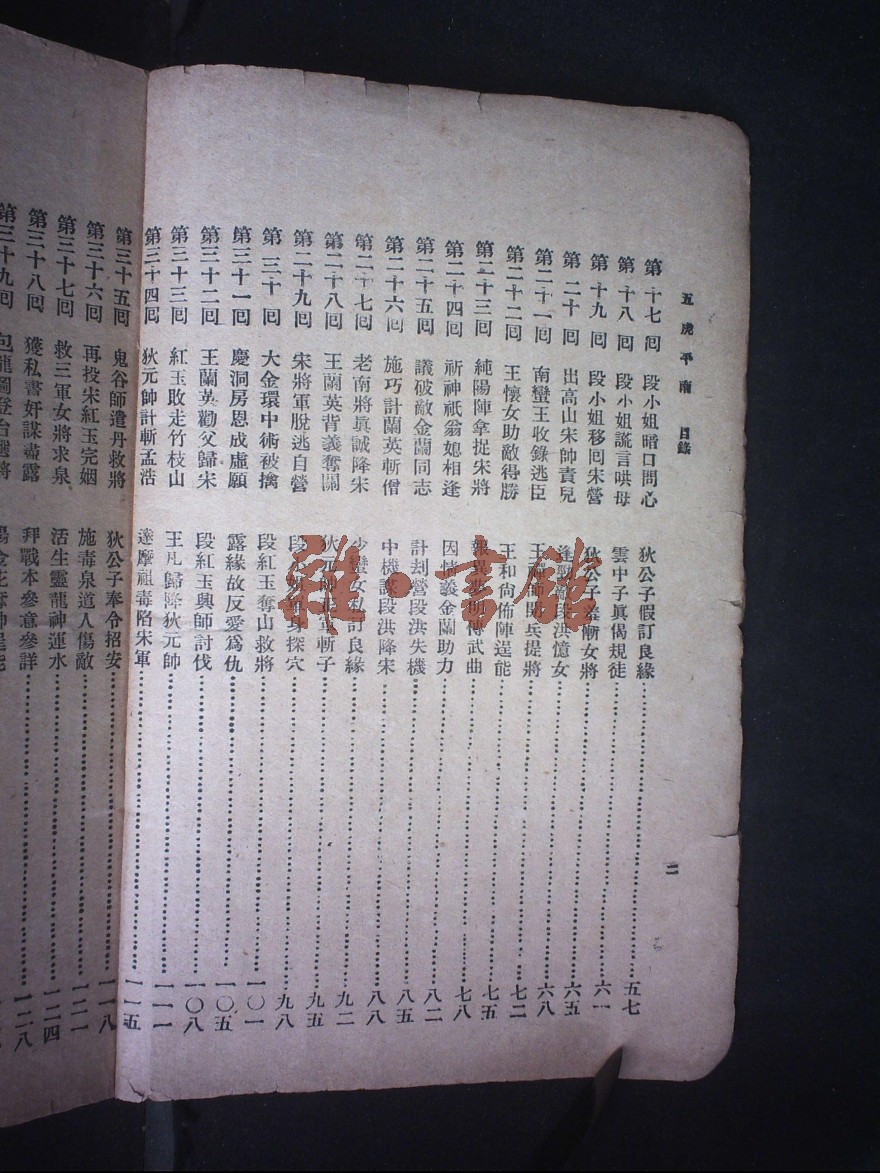 五虎平南 目錄
第十七回 段小姐暗口問心 狄公子假訂良緣 五七
第十八回 段小姐謊言哄母 雲中子眞偈規徒
第十九回 段小姐移回宋營 狄公子羞慚女將 六一
第二十回 出高山宋帥責兒 逢勁敵段洪憶女 六五
第二十一回 南蠻王收錄逃臣 王禪師助兵提將 六八
第二十二回 王懷女助敵得勝 王和尚佈陣逞能 七二
第二十三回 純陽陣拿捉宋將 武曲 七五
第二十四回 祈神祇翁媳相逢 因情義金蘭助力 七八
第二十五回 議破敵金蘭同志 計刦營段洪失機 八二
第二十六回 施巧計蘭英斬僧 中機謀段洪降宋 八五
第二十七回 老南將眞誠降宋 少蠻女私訂良緣 八八
第二十八回 王蘭英背義奪關 狄元帥 斬子 九二
第二十九回 宋將軍脫逃自營 段 身探穴 九五
第三十回 大金環中術被擒 段紅玉奪山救將 九八
第三十一回 慶洞房恩成虛願 露緣故反愛爲仇 一〇一
第三十二回 王蘭英勸父歸宋 段紅玉興師討伐 一〇五
第三十三回 紅玉敗走竹枝山 王凡歸降狄元帥 一〇八
第三十四回 狄元帥計斬孟浩 達摩祖毒陷宋軍 一一一
第三十五回 鬼谷師遣丹救將 狄公子奉令招安 一一五
第三十六回 再投宋紅玉完姻 施毒泉道人傷敵 一一八
第三十七回 救三軍女將求泉 活生靈龍神運水 一二一
第三十八回 獲私書奸謀盡露 拜戰本參意參詳 一二四
第三十九回 包龍圖登台選將 楊金花奪帥逞能 一二八
二
雜·書館